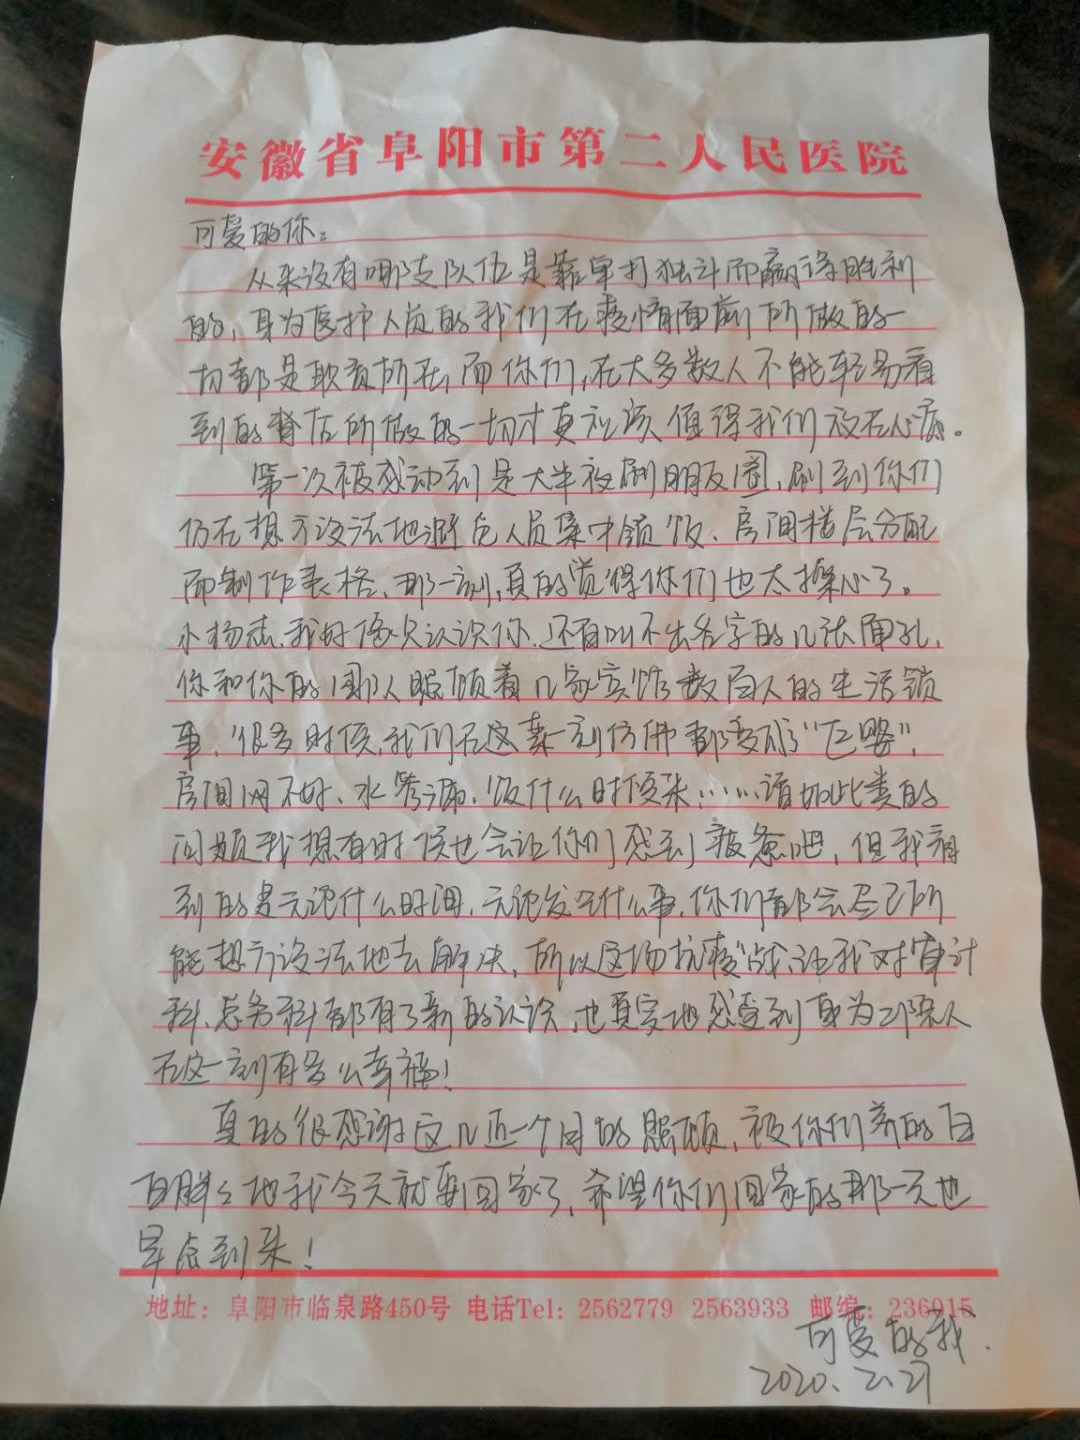 安徽省阜阳市第二人民医院
可爱的你:
从来没有哪支队伍是靠单打独斗而赢得胜利
的,身为医护人员的我们在疫情面前所做的一
切都是职责所在,而你们,在大多数人不能轻易看
到的背后所做的一切才真应该值得我们放在心底。
第一次被感动到是大半夜刷朋友圈,刷到你们
仍在想方设法地避免人员集中领饭、房间楼层分配
而制作表格、那一刻,真的觉得你们也太操心了。
小杨杰,我好像只认识你,还有叫不出名字的几张面孔,
你和你的团队照顾着几家宾馆数百人的生活锁
事,很多时候,我们在这某一刻仿佛都变成了“巨婴”,
房间网不好、水管漏、饭什么时候来……诸如此类的
问题我想有时候也会让你们感到疲惫吧,但我看
到的是无论什么时间,无论发生什么事,你们都会尽己所
能想方设法地去解决,所以这场抗疫战,让我对审计
科、总务科都有了新的认识,也真实地感受到身为二院人
在这一刻有多么幸福!
真的很感谢这几近一个月的照顾,被你们养的白
白胖胖地我今天就要回家了,希望你们回家的那一天也
早点到来!
地址:阜阳市临泉路450号 电话Tel:2562779 2563933 邮编:236015
可爱的我.
2020.2.21